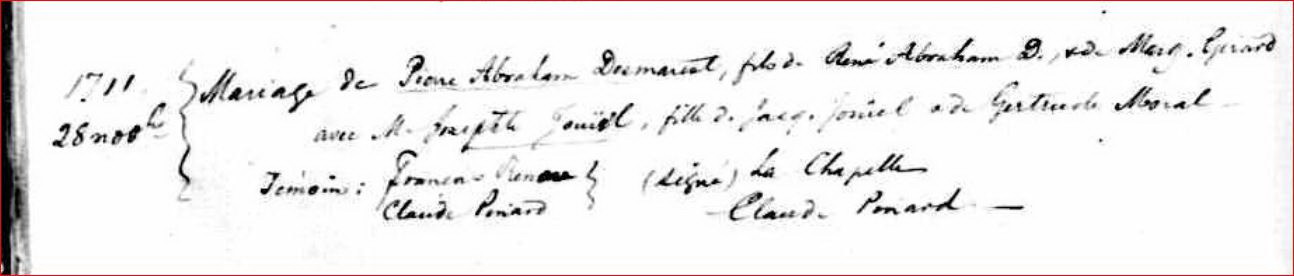 1711. Mariage de Pierre Abraham Desmarest, fils de René Abraham D., & de Marg. Girard
28 novbre avec M. Josephte Jouiel, fille d. Jacq. Jouiel & de Gertrude Moral
Témoins: François (Signé) La Chapelle
Claude Pinard Claude Pinard